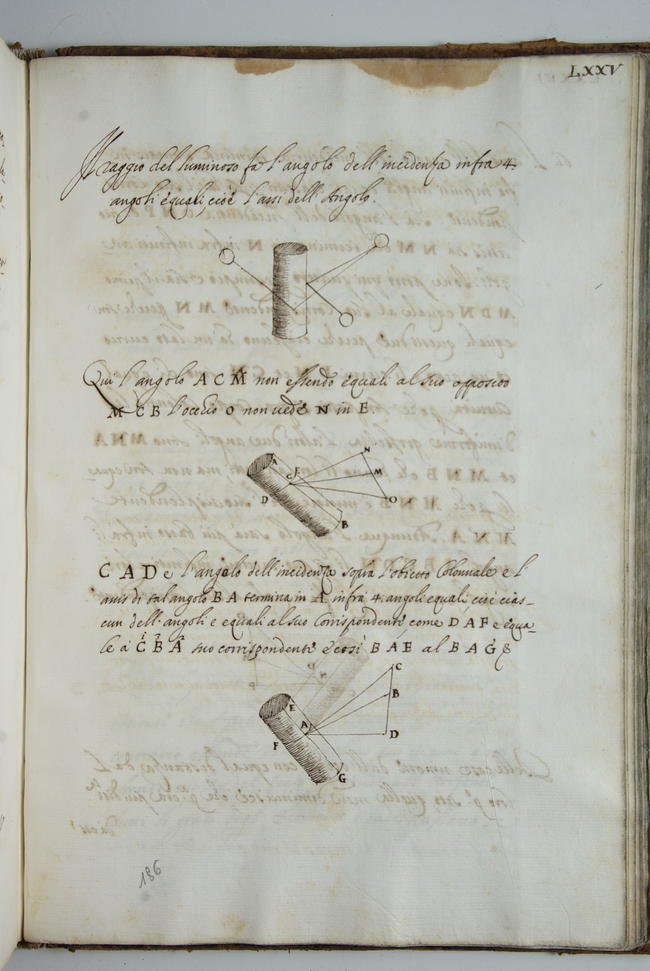 LXXV
Il raggio del luminoso fa l'angolo dell'incidenza infra 4.
angoli equali, cioè l'assi dell'Angolo.
Qui l'angolo A C M non essendo equali al suo opposito
M C B l'occhio O non vede N in E
A
C
E
N
M
D
O
B
C A D e l'angolo dell'incidenza sopra l'obietto Colonnale e l'
assis di tal angolo B A termina in A infra 4. angoli equali cioè cias-
cun dell'angoli e equali al suo Corrispondente, come D A F e equa-
le à C B A suo corrispondente e così B A E al B A G &
C
E
B
A
F
D
G
186